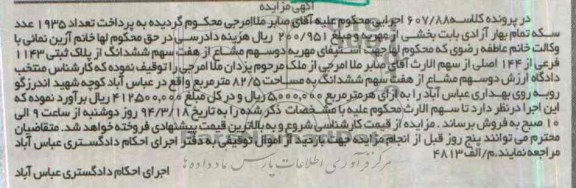 آگهی مزایده
در پرونده کلاسه ۶۰۷/۸۸ اجرایی محکوم علیه آقای صابر ملاامرجی محکوم گردیده به پرداخت تعداد ۱۹۳۵ عدد
سکه تمام بهار آزادی بابت بخشی از مهریه و مبلغ ۲۰۰/۹۵۱ ریال هزینه دادرسی در حق محکوم لها خانم آرین نمائی با
وکالت خانم عاطفه رضوی که محکوم لها جهت استیفای مهریه دوسهم مشاع از هفت سهم ششدانگ از پلاک ثبتی ۱۱۴۳
فرعی از ۱۴۴ اصلی از سهم الارث آقای صابر ملا امرجی از ملک مرحوم یزدان ملا امرجی را توقیف نموده که کارشناس منتخب
دادگاه ارزش دوسهم مشاع از هفت سهم ششدانگ به مساحت ۸۲/۵ مترمربع واقع در عباس آباد کوچه شهید اندرزگو
روبه روی بهداری عباس آباد را به ازای هرمترمربع ۵,۰۰۰,۰۰۰ ریال و در کل مبلغ ۴۱۲۵۰۰,۰۰۰ ریال برآورد نموده که
این اجرا درنظر دارد تا سهم الارث محکوم علیه با مشخصات ذکر شده را به تاریخ ۹۴/۳/۱۸ روز دوشنبه از ساعت ۹ الی
۱۰ صبح به فروش برساند. مزایده از قیمت کارشناسی شروع و به بالاترین قیمت پیشنهادی فروخته خواهد شد. متقاضیان
محترم می توانند پنج روز قبل از انجام مزایده جهت بازدید از اموال توقیفی به دفتر اجرای احکام دادگستری عباس آباد
مراجعه نمایند.م/الف ۴۸۱۳
اجرای احکام دادگستری عباس آباد
مرکز فرآوری اطلاعات پارس نماد داده ها